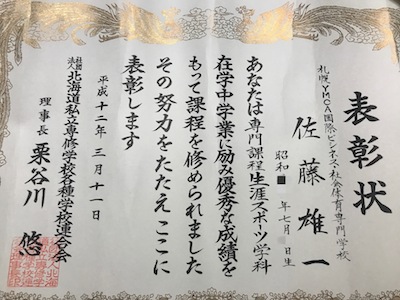 表彰状
札幌YMCA国際ビジネス・社会体育専門学校
佐藤雄一
昭和 年七月 日生
あなたは専門課程生涯スポーツ学科
在学中学業に励み優秀な成績を
もって課程を修められました
その努力をたたえここに
表彰します
平成十二年三月十一日
社団法人 北海道私立専修学校各種学校連合会
理事長 栗谷川 悠